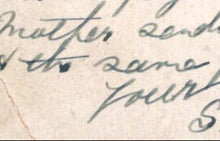 Mother sends
the same
Your
S